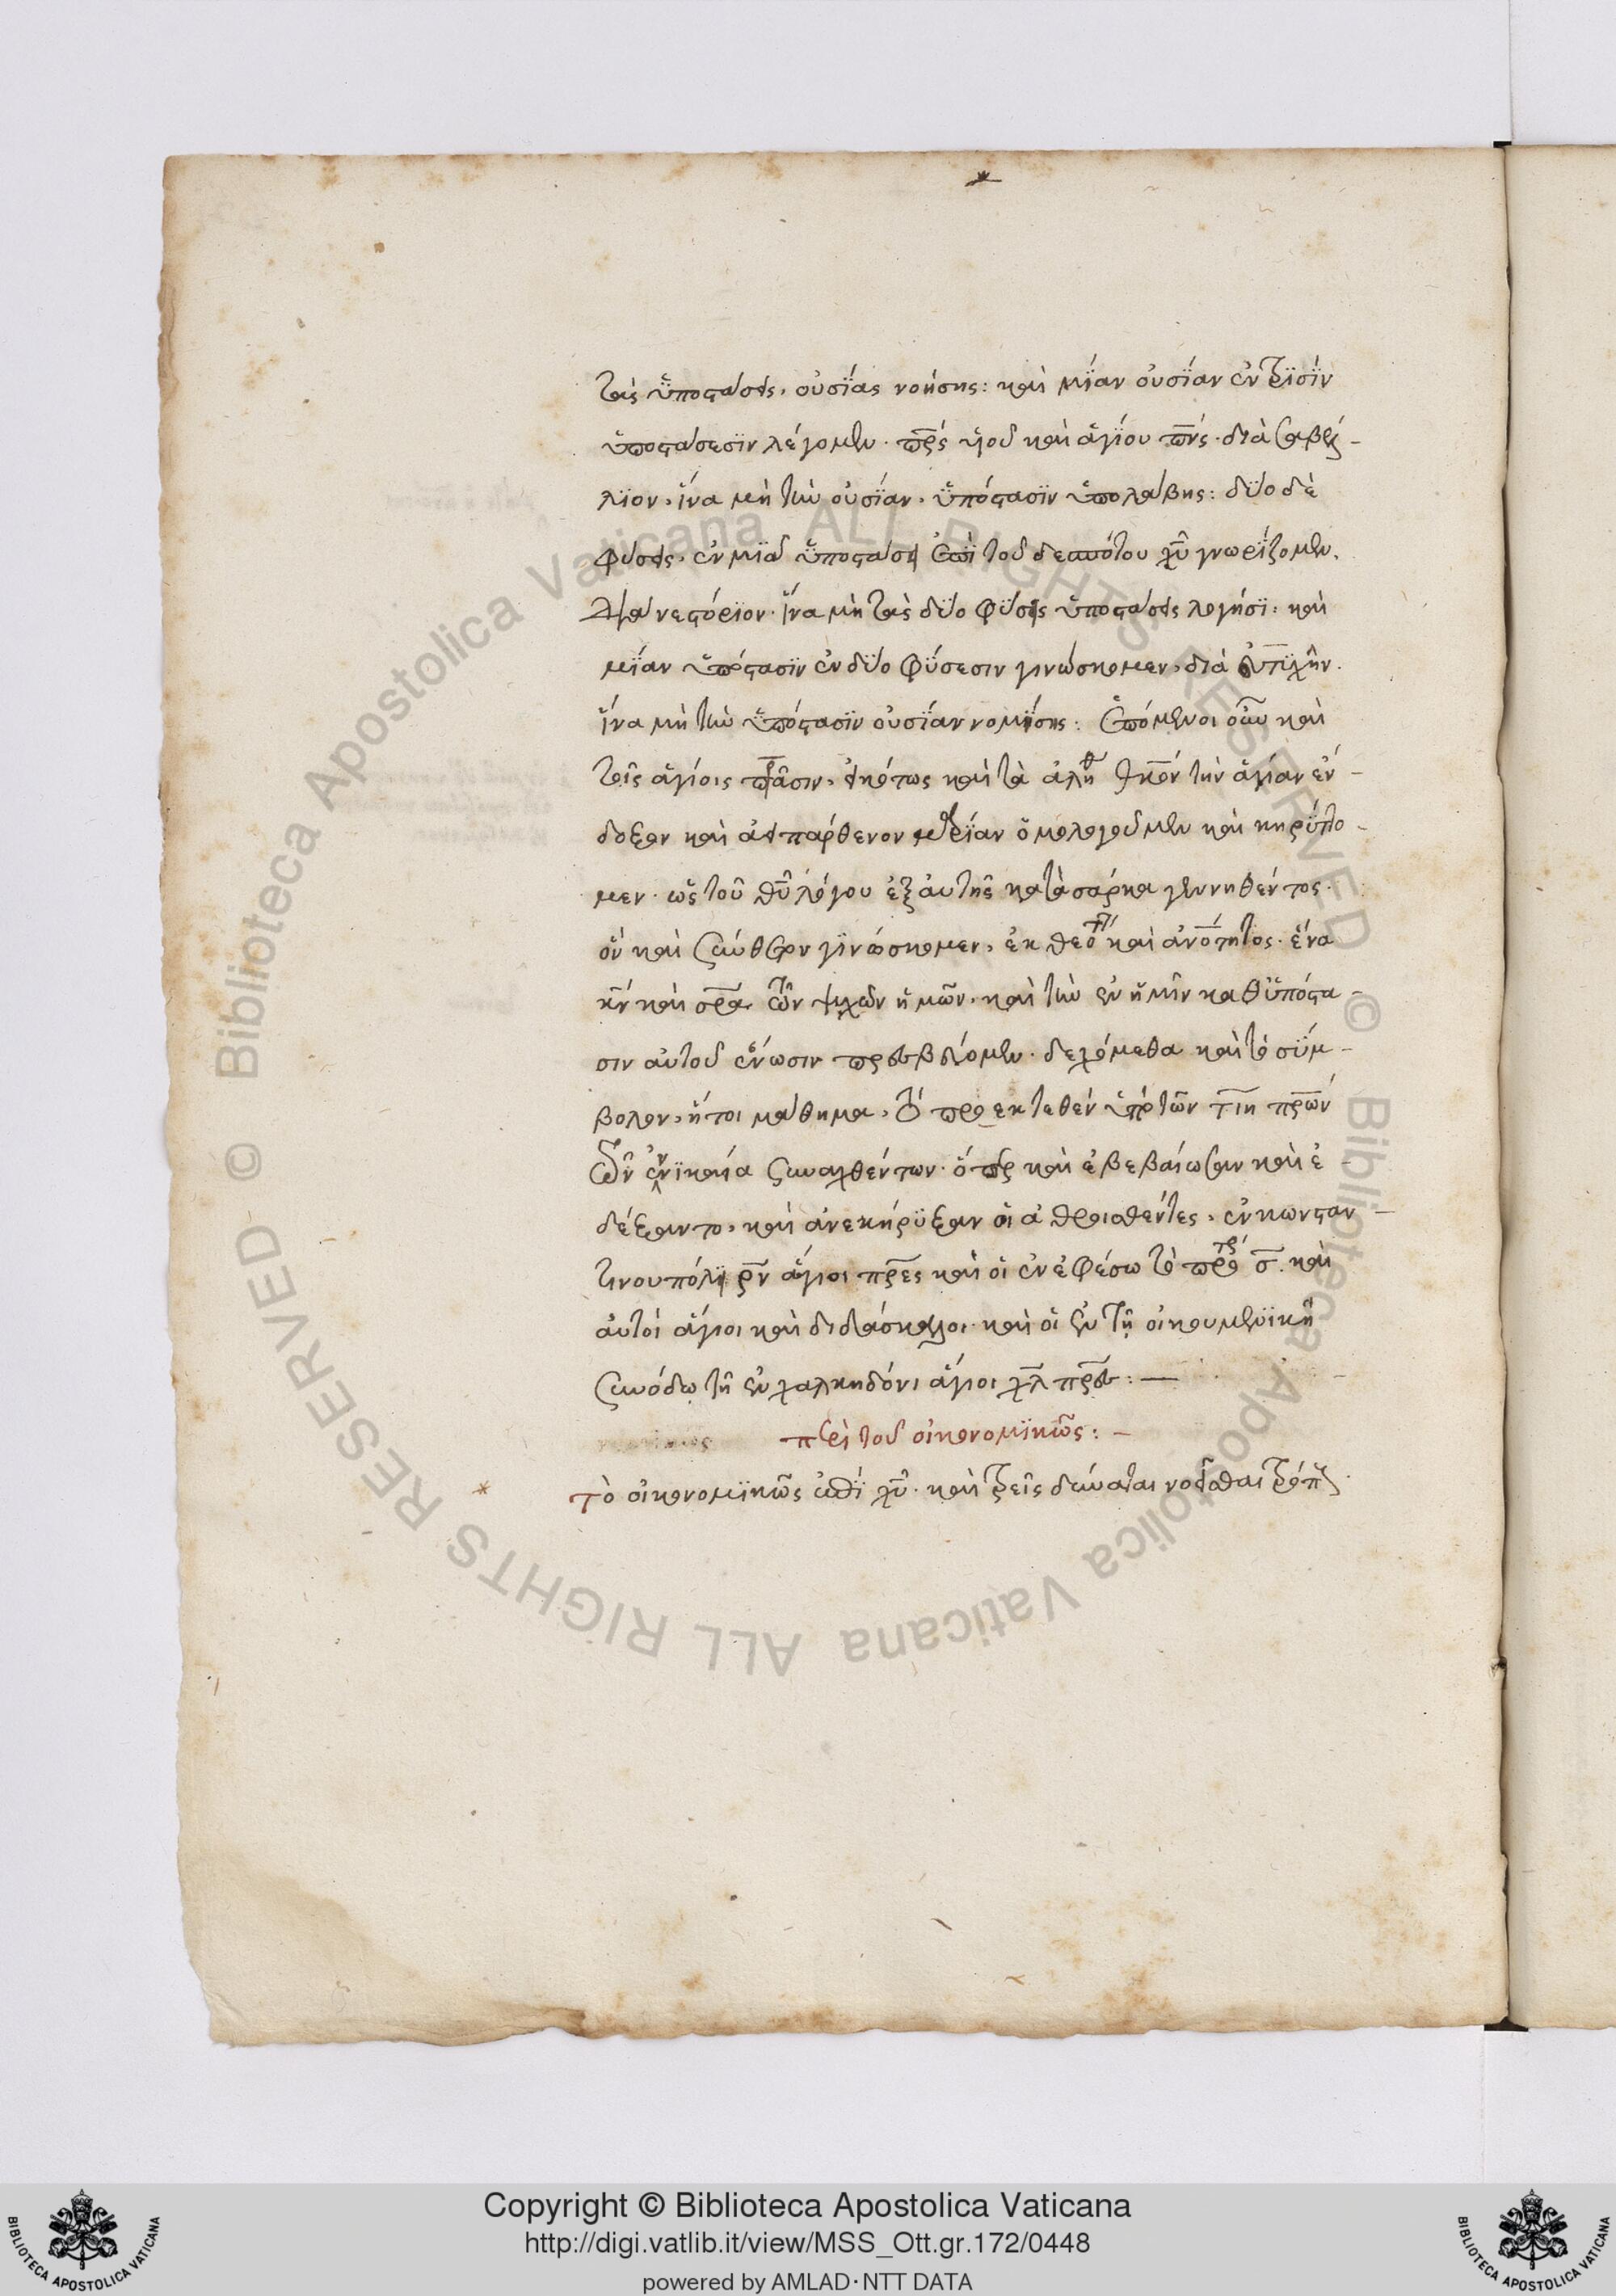 τὰς ὑποστάσεις, οὐσΐας νοήσης: καὶ μΐαν οὐσΐαν ἐν τρϊσΐν
ὑποστάσεσϊν λέγομεν. πρς υἱοῦ καὶ ἁγΐου πνς. διὰ σαβέλ-
λϊον, ἵνα μὴ τὴν οὐσΐαν, ὑπόστασϊν ὑπολάβης: δύο δὲ
φύσεις, ἐν μϊᾶ ὑποστάσει ἐπὶ τοῦ δεσπότου χῦ γνωρΐζομεν,
διὰ νεστόρϊον. ἵνα μὴ τὰς δύο φύσεις ὑποστάσεις λογήσϊ: καὶ
μΐαν ὑπόστασϊν ἐν δύο φύσεσιν γινώσκομεν, διὰ εὐτϋχῆν.
ἵνα μὴ τὴν ὑπόστασϊν οὐσΐαν νομΐσης: ἑπόμενοι οὖν καὶ
τοῖς ἁγίοις πράσιν, εἰκότως καὶ τὰ ἀληθ θκον τὴν ἁγίαν ἔν-
δοξον καὶ ἀειπάρθενον μαρΐαν ὁμολογοῦμεν καὶ κηρύττο-
μεν. ὡς τοῦ θῦ λόγου ἐξ αὐτῆς κατὰ σάρκα γεννηθέντος.
ὃν καὶ σύνθετον γϊνώσκομεν, ἐκ θεότητ καὶ ἀνότητος. ἕνα
κν καὶ σρα τῶν ψυχῶν ἡμῶν. καὶ τὴν ἐν ἡμῖν καθ ὑπόστα-
σιν αὐτοῦ ἕνωσιν πρεσβεύομεν. δεχόμεθα καὶ τὸ σύμ-
βολον, ἤτοι μάθημα, τὸ προεκτεθὲν ὑπὸ τῶν τιη πρων
τῶν ἐν νϊκαία συναχθέντων. ὅπερ καὶ ἐβεβαίωσαν καὶ ἐ-
δέξαντο, καὶ ἀνεκήρυξαν οἱ ἀθροισθέντες, ἐν κωνσταν-
τινουπόλει ρν ἅγιοι πρες καὶ οἱ ἐν ἐφέσω τὸ πρότρ σ. καὶ
αὐτοὶ ἅγιοι καὶ διδάσκαλοι. καὶ οἱ ἐν τῇ οἰκουμενϊκῇ
συνόδω τῇ ἐν χαλκηδόνι ἅγιοι χλ πρες:—
περὶ τοῦ οἰκονομϊκῶς:-
Τὸ οἰκονομϊκῶς ἐπὶ χῦ. καὶ τρεῖς δύναται νοεῖσθαι τρόπους.
Copyright © Biblioteca Apostolica Vaticana
http://digi.vatlib.it/view/MSS_Ott.gr.172/0448
powered by AMLAD·NTT DATA
BIBLIOTECA APOSTOLICA VATICANA
BIBLIOTECA APOSTOLICA VATICANA
© Biblioteca Apostolica Vaticana ALL RIGHTS RESERVED
© Biblioteca Apostolica Vaticana ALL RIGHTS RESERVED